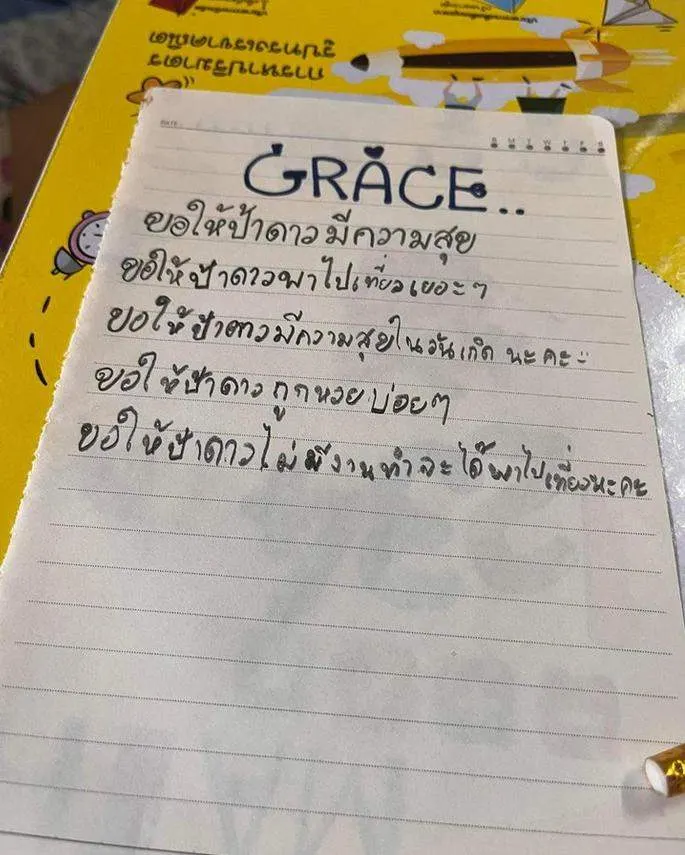 การนำปริมาตร
รูปทรงเรขาคณิต
DATE
S M T W T F S
GRACE..
ขอให้ป้าดาวมีความสุข
ขอให้ป้าดาวพาไปเที่ยวเยอะๆ
ขอให้ป้าดาวมีความสุขในวันเกิด นะคะ
ขอให้ป้าดาวถูกหวยบ่อยๆ
ขอให้ป้าดาวไม่มีงานทำจะได้พาไปเที่ยวนะคะ